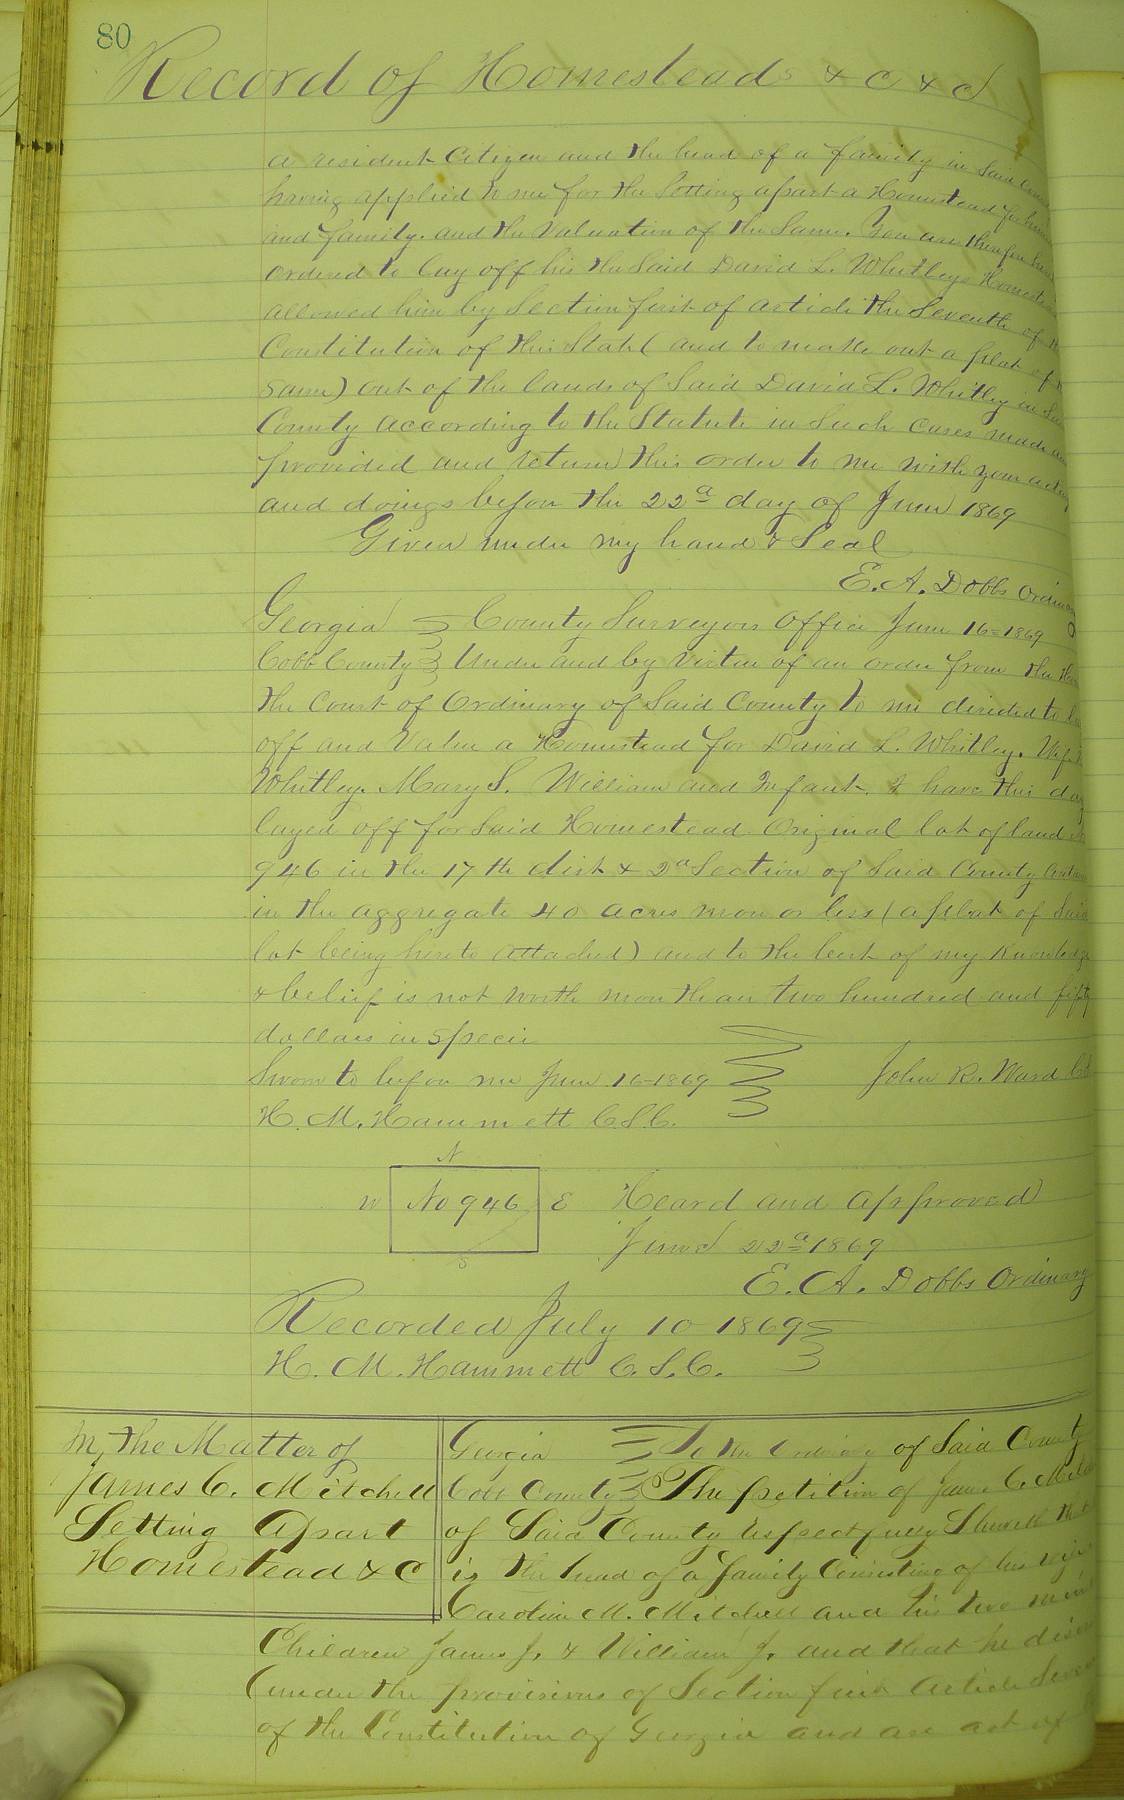 80
Record of Homesteads &c &c
a resident Citizen and the head of a family in Said
having applied to me for the Setting apart a Homestead for
and family. and the Valuation of the Same. You are therefore
ordered to lay off his the Said David L. Whitleys
allowed him by Section first of article the Seventh of
Constitution of this State (and to make out a plat of
Same) out of the lands of Said David L. Whitley in
County according to the Statute in Such cases made
provided and return this order to me with your
and doings before the 22d day of June 1869
Given under my hand & Seal
E. A. Dobbs Ordinary
Georgia County Surveyors Office June 16=1869
Cobb County Under and by Virtue of an order from the
the Court of Ordinary of Said County to me directed to
off and Value a Homestead for David L. Whitley. Wife
Whitley. Mary S. William and Infant. I have this day
layed off for Said Homestead Original lot of land
946 in the 17th dist & 2d Section of Said County
in the aggregate 40 acres more or less (a plat of Said
lot being hereto attached) and to the best of my Knowledge
& belief is not worth more than two hundred and fifty
dollars in Specie
Sworn to before me June 16-1869 John R. Ward
H. M. Hammett C.S.C.
N
W No 946 E Heard and approved
S June 22d 1869
E. A. Dobbs Ordinary
Recorded July 10 1869
H. M. Hammett C.S.C.
In The Matter of
James C. Mitchell
Setting Apart
Homestead &C
Georgia To the Ordinary of Said County
Cobb County The petition of James C.
of Said County respectfully Sheweth that
is the head of a family Consisting of his
Caroline M. Mitchell and his two
Children James J. & William J. and that he
under the provisions of Section first Article
of the Constitution of Georgia and an act of